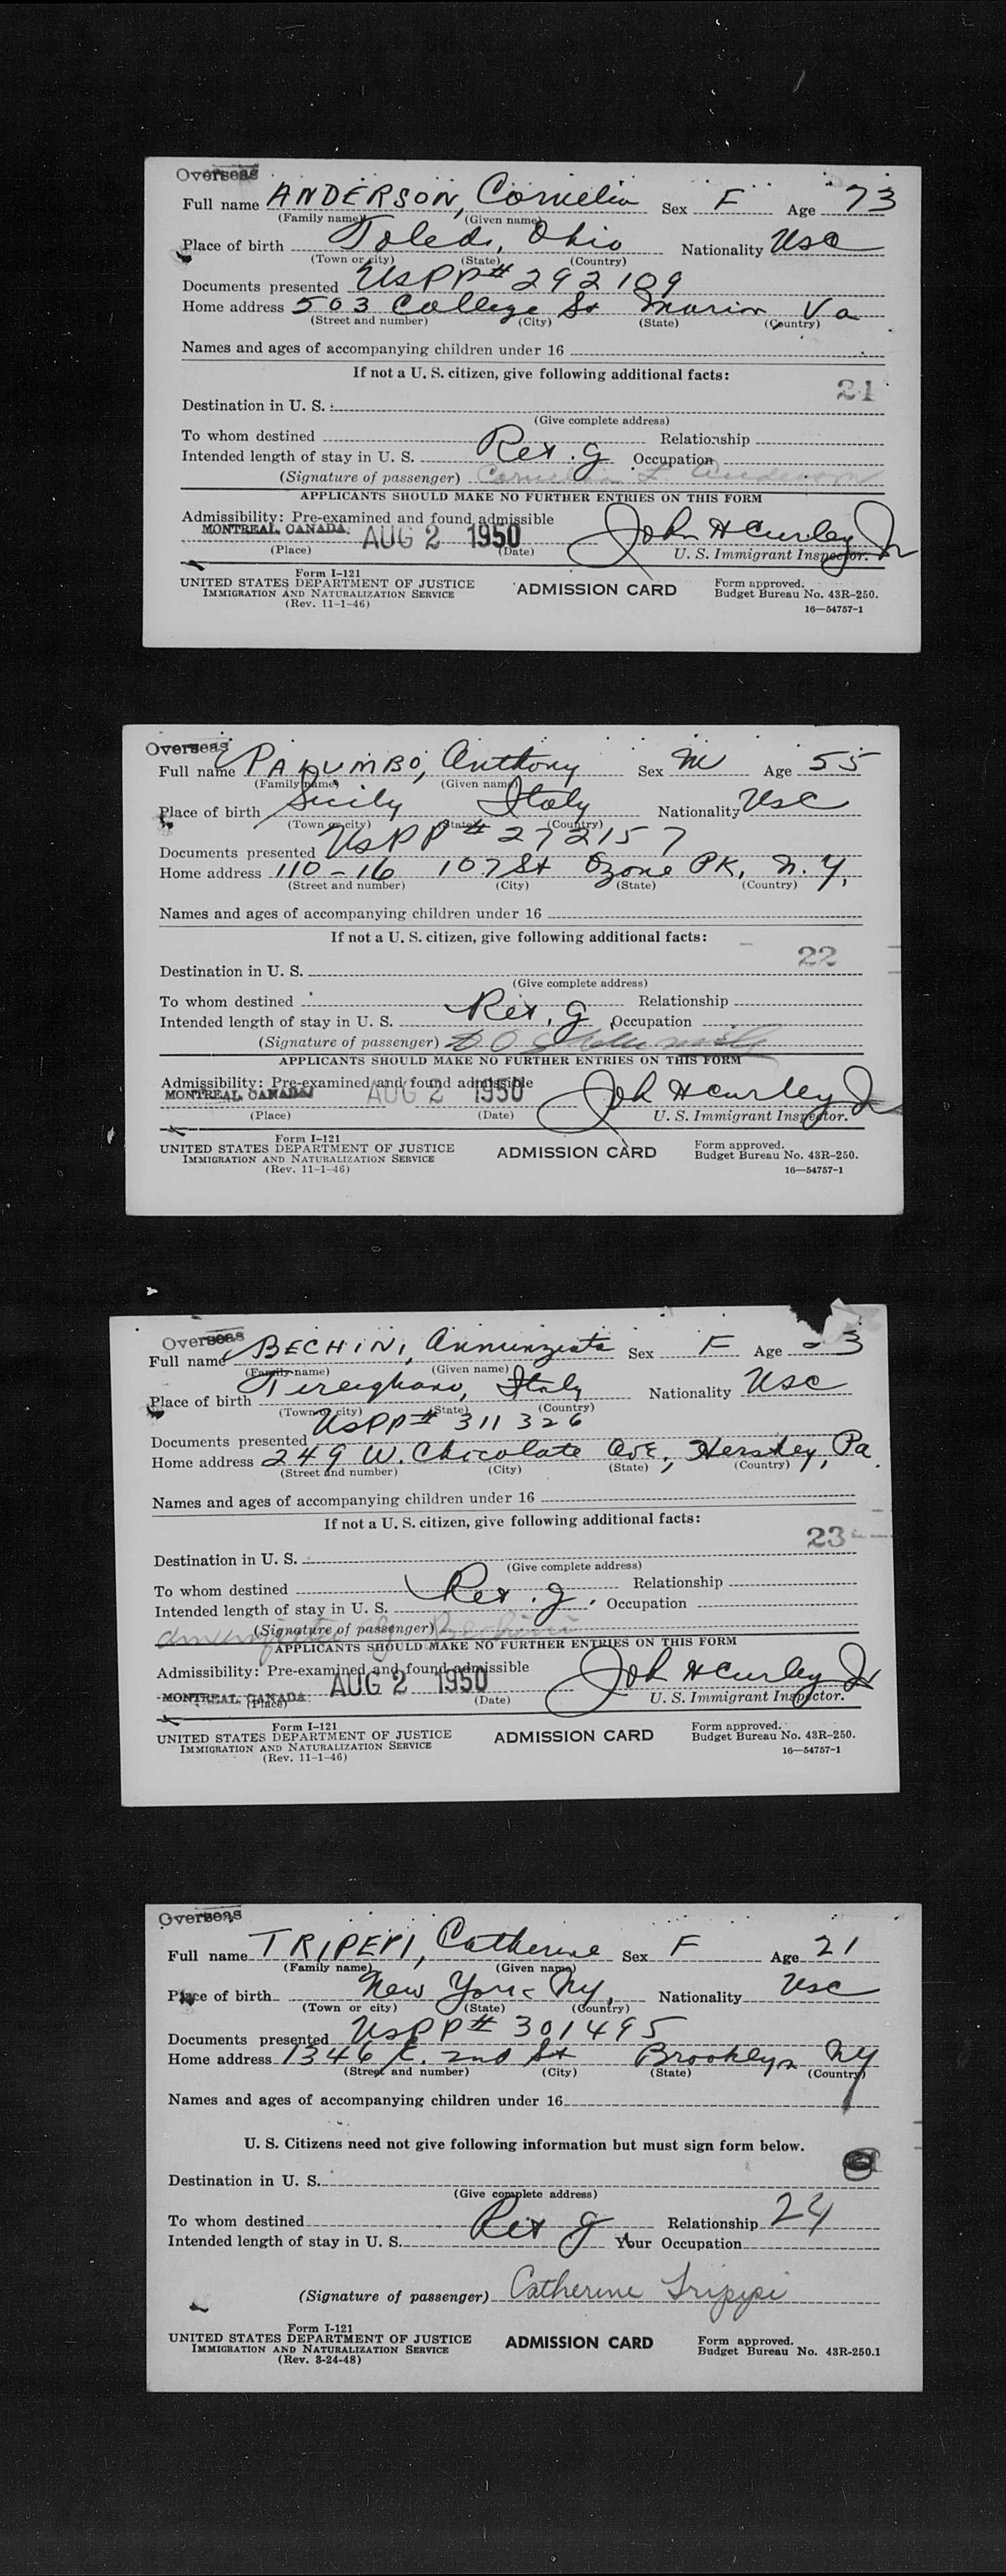 Overseas
Full name ANDERSON, Cornelia Sex F Age 73
(Family name) (Given name)
Place of birth Toledo, Ohio Nationality Usc
(Town or city) (State) (Country)
Documents presented USPP# 292109
Home address 503 College St Marion Va
(Street and number) (City) (State) (Country)
Names and ages of accompanying children under 16
If not a U. S. citizen, give following additional facts:
21
Destination in U. S.
(Give complete address)
To whom destined Relationship
Intended length of stay in U. S. Rex. g Occupation
(Signature of passenger) Cornelia F. Anderson
APPLICANTS SHOULD MAKE NO FURTHER ENTRIES ON THIS FORM
Admissibility: Pre-examined and found admissible
MONTREAL, CANADA. AUG 2 1950 John H Curley Jr
(Place) (Date) U. S. Immigrant Inspector.
Form I-121
UNITED STATES DEPARTMENT OF JUSTICE ADMISSION CARD Form approved.
IMMIGRATION AND NATURALIZATION SERVICE Budget Bureau No. 43R-250.
(Rev. 11-1-46) 16—54757-1
Overseas
Full name PALUMBO, Anthony Sex M Age 55
(Family name) (Given name)
Place of birth Sicily Italy Nationality Usc
(Town or city) (State) (Country)
Documents presented UsPP # 272157
Home address 110-16 107 St Ozone PK, N.Y.
(Street and number) (City) (State) (Country)
Names and ages of accompanying children under 16
If not a U. S. citizen, give following additional facts:
22
Destination in U. S.
(Give complete address)
To whom destined Relationship
Intended length of stay in U. S. Rex. g Occupation
(Signature of passenger)
APPLICANTS SHOULD MAKE NO FURTHER ENTRIES ON THIS FORM
Admissibility: Pre-examined and found admissible
MONTREAL, CANADA AUG 2 1950 Joh H Curley Jr
(Place) (Date) U. S. Immigrant Inspector.
Form I-121
UNITED STATES DEPARTMENT OF JUSTICE ADMISSION CARD Form approved.
IMMIGRATION AND NATURALIZATION SERVICE Budget Bureau No. 43R-250.
(Rev. 11-1-46) 16—54757-1
Overseas
Full name BECHINI, Annunziata Sex F Age 3
(Family name) (Given name)
Place of birth Italy Nationality Usc
(Town or city) (State) (Country)
Documents presented UsPP# 311326
Home address 249 W. Chocolate Ave, Hershey, Pa.
(Street and number) (City) (State) (Country)
Names and ages of accompanying children under 16
If not a U. S. citizen, give following additional facts:
23
Destination in U. S.
(Give complete address)
To whom destined Relationship
Intended length of stay in U. S. Rex. g. Occupation
(Signature of passenger)
APPLICANTS SHOULD MAKE NO FURTHER ENTRIES ON THIS FORM
Admissibility: Pre-examined and found admissible
MONTREAL, CANADA. AUG 2 1950 Joh H Curley Jr
(Place) (Date) U. S. Immigrant Inspector.
Form I-121
UNITED STATES DEPARTMENT OF JUSTICE ADMISSION CARD Form approved.
IMMIGRATION AND NATURALIZATION SERVICE Budget Bureau No. 43R-250.
(Rev. 11-1-46) 16—54757-1
Overseas
Full name TRIPEPI, Catherine Sex F Age 21
(Family name) (Given name)
Place of birth New York Ny, Nationality Usc
(Town or city) (State) (Country)
Documents presented UsPP# 301495
Home address 1346 E. 2nd St Brooklyn Ny
(Street and number) (City) (State) (Country)
Names and ages of accompanying children under 16
U. S. Citizens need not give following information but must sign form below.
Destination in U. S.
(Give complete address)
To whom destined Relationship 24
Intended length of stay in U. S. Rex g. Your Occupation
(Signature of passenger) Catherine Tripepi
Form I-121
UNITED STATES DEPARTMENT OF JUSTICE ADMISSION CARD Form approved.
IMMIGRATION AND NATURALIZATION SERVICE Budget Bureau No. 43R-250.1
(Rev. 3-24-48)